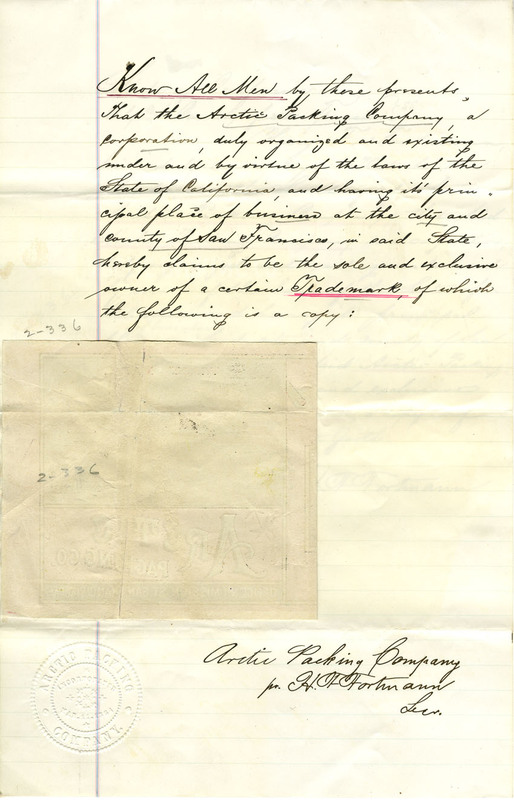 Know All Men by these presents,
That the Arctic Packing Company, a
corporation, duly organized and existing
under and by virtue of the laws of the
State of California, and having it's prin-
cipal place of business at the city and
county of San Francisco, in said State,
hereby claims to be the sole and exclusive
owner of a certain Trademark, of which
the following is a copy:
2-336
2-336
Arctic Packing Company
pr. H. F. Fortmann
Sec.
ARCTIC PACKING
COMPANY